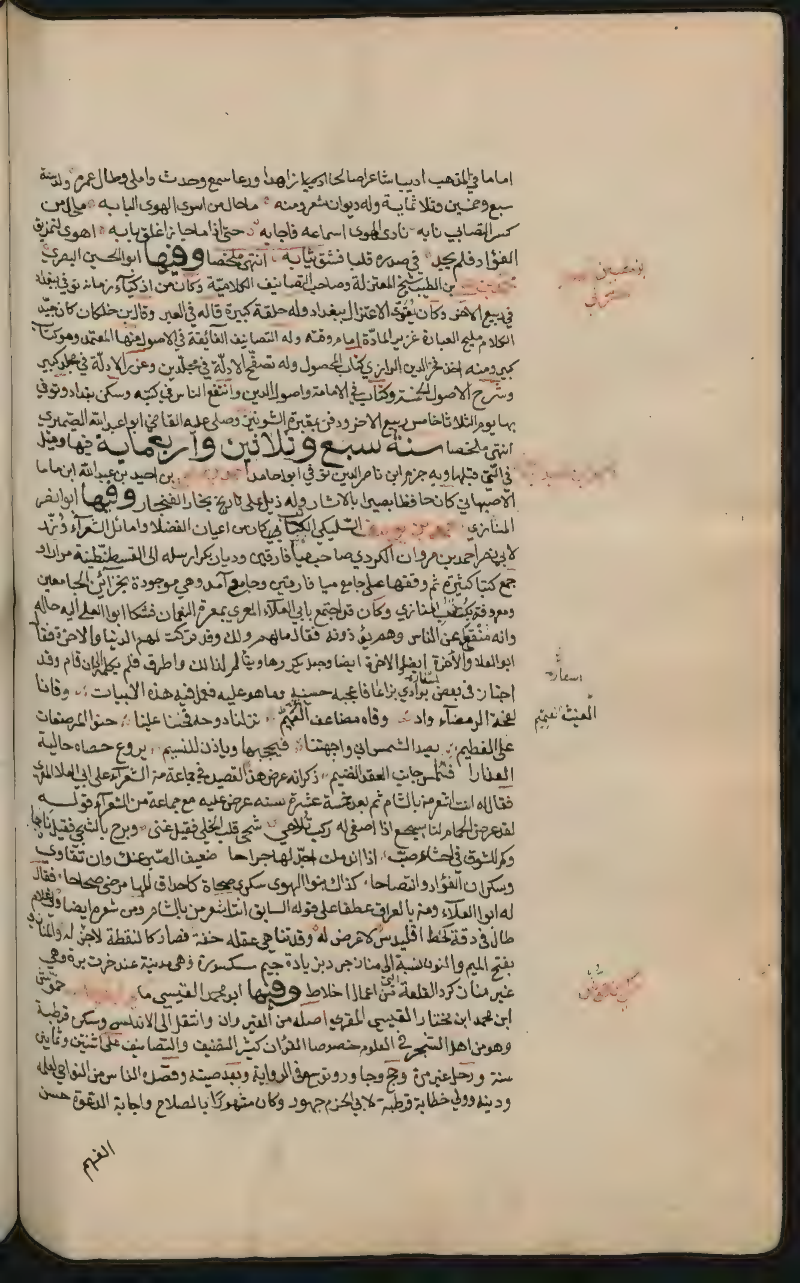 اماما في المذهب اديبا شاعرا صالحا زاهدا ورعا سمع وحدث واملى وطال عمره ولد سنة
سبع وخمسين وثلاثماية وله ديوان شعر ومنه ما حال من اسرى الهوى البابه ما زال من
كسر التصابي نابه نادى الهوى اسماعه فاجابه حتى اذا ما جاز اغلق بابه اهوى لتمزيق
الفؤاد فلم يجد في صدره قلبا فشق ثيابه انتهى ملخصا وفيها ابو الحسين البصري
بن الطيب شيخ المعتزلة وصاحب التصانيف الكلامية وكان من اذكياء زمانه توفي ببغداد
في ربيع الاخر وكان يقرئ الاعتزال ببغداد وله حلقة كبيرة قاله في العبر وقال ابن خلكان كان جيد
الكلام مليح العبارة غزير المادة امام وقته وله التصانيف الفائقة في الاصول منها المعتمد وهو كتاب
كبير ومنه اخذ فخر الدين الرازي كتاب المحصول وله تصفح الادلة في مجلدين وغرر الادلة في مجلد كبير
وشرح الاصول الخمسة وكتاب في الامامة واصول الدين وانتفع الناس في كتبه وسكن بغداد وتوفي
بها يوم الثلاثا خامس ربيع الاخر ودفن بمقبرة الشونيزي وصلى عليه القاضي ابو عبد الله الصيمري
انتهى ملخصا سنة سبع وثلاثين واربعماية فيها وقيل
في التي قبلها وبه جزم ابن ناصر الدين توفي ابو حامد بن احيد بن عبد الله ابن ماما
الاصبهاني كان حافظا بصيرا بالاثار وله ذيل على تاريخ بخارا لغنجار وفيها ابو النصر
المنازي احمد بن يوسف السليكي الكاتب كان من اعيان الفضلا واماثل الشعراء وزر
لابي نصر احمد بن مروان الكردي صاحب ميافارقين وديار بكر ارسله الى القسطنطينة مرارا و
جمع كتبا كثيرة ثم وقفها على جامع ميافارقين وجامع آمد وهي موجودة بخزائن الجامعين
ومعروفة بكتب المنازي وكان قد اجتمع بابي العلاء المعري بمعرة النعمان فشكا ابو العلا اليه حاله
وانه منقطع عن الناس وهم يؤذونه فقال مالهم ولك وقد تركت لهم الدنيا والاخرة فقال
ابو العلا والآخرة ايضا والاخرة ايضا وجعل يكررها ويتألم لذلك واطرق فلم يكلمه الى ان قام وقد
اجتاز في بعض اسفاره بوادي بزاعا فاعجبه حسنه وما هو عليه فعمل فيه هذه الابيات وقانا
لفحة الرمضاء واد وقاه مضاعف العميم نزلنا دوحه فحنا علينا حنو المرضعات
على الفطيم يصد الشمس انى واجهتنا فيحجبها وياذن للنسيم يروع حصاه حالية
العذارا فتلمس جانب العقد النضيم ذكر انه عرض هذا القصيد في جماعة من الشعراء على ابي العلا المعري
فقال له انت اشعر من بالشام ثم بعد خمسة عشرة سنة عرض عليه مع جماعة من الشعراء قولـــه
لقد عرض الحمام لنا بسجع اذا اصغى له ركب تلاحى شجى قلب الخلي فقيل غنى وبرح بالشجي فقيل ناحا
وكم للشوق في احشاء صب اذا اندملت اجد لها جراحا ضعيف الصبر عنك وان تقاوى
وسكران الفؤاد وان تصاحا كذاك بنوا الهوى سكرى صحاة كاحداق المها مرضى صحاحا فقال
له ابوا العلاء ومن بالعراق عطفا على قوله السابق انت اشعر من بالشام ومن شعره ايضا ولي غلام
طال في دقة كخط اقليدس لا عرض له وقد تناهى عقله خفة فصار كالنقطة لا جزء له والمنازي
بفتح الميم والنون نسبة الى مناز جرد بزيادة جيم مكسورة وهي مدينة عند خرت برة وهي
غير مناز كرد القلعة من اعمال اخلاط وفيها ابو محمد القيسي حموش
ابن محمد ابن مختار القيسي المقري اصله من القيروان وانتقل الى الاندلس وسكن قرطبة
وهو من اهل التبحر في العلوم خصوصا القرآن كثير التصنيف والتصانيف عاش اثنتين وثمانين
سنة ورحل غير مرة وحج وجاور وتوسع في الرواية وبعد صيته وقصده الناس من النواحي لعلمه
ودينه وولي خطابة قرطبة لابي الحزم جهور وكان مشهورا بالصلاح واجابة الدعوة حسن
الفهم
اسفاره